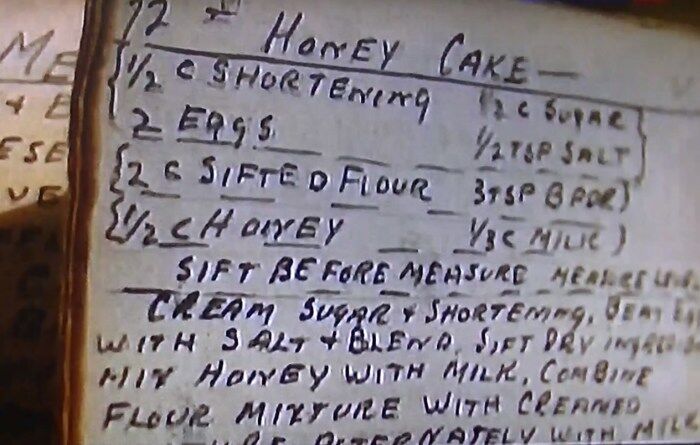 72 - HONEY CAKE —
{1/2 C SHORTENING 1/2 C SUGAR}
2 EGGS 1/2 TSP SALT}
{2 C SIFTED FLOUR 3 TSP B PDR)
{1/2 C HONEY 1/3 C MILK)
SIFT BEFORE MEASURE
CREAM SUGAR & SHORTENING, BEAT
WITH SALT & BLEND, SIFT DRY
MIX HONEY WITH MILK, COMBINE
FLOUR MIXTURE WITH CREAMED
ALTERNATELY WITH MILK
ME
& E
ESE
VE